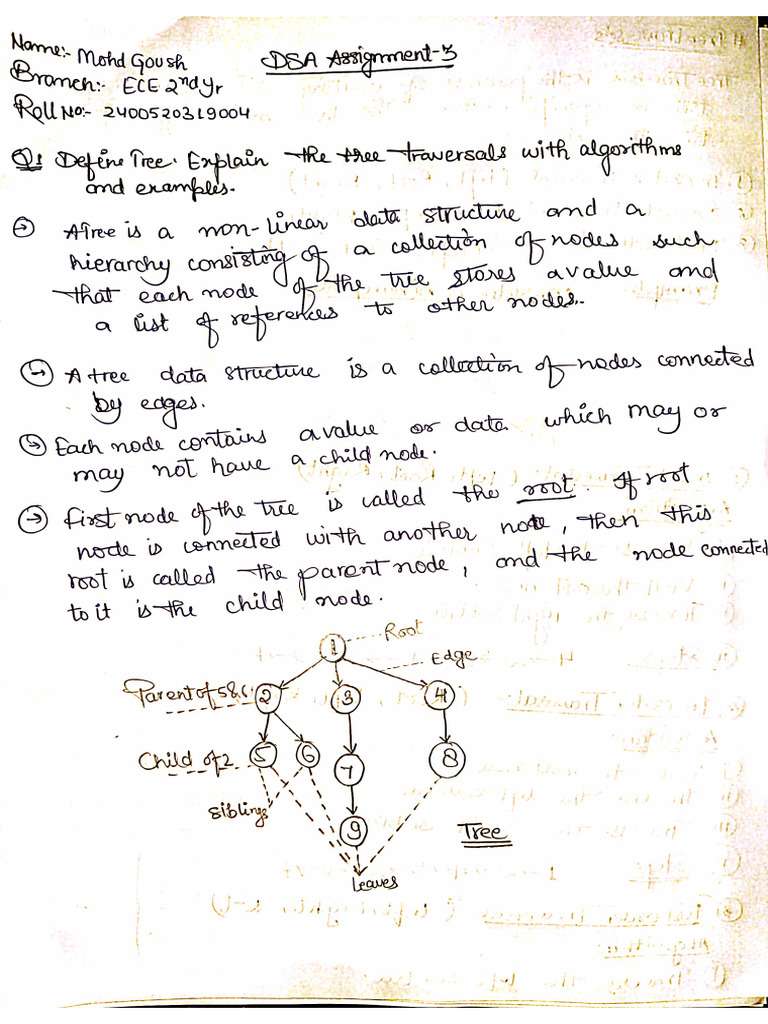 Name:- Mohd Goush
DSA Assignment-3
Branch:- ECE 2nd Yr
Roll No:- 2400520319004
Q1 Define Tree. Explain the tree traversals with algorithms
and examples.
→ A Tree is a non-linear data structure and a
hierarchy consisting of a collection of nodes such
that each node of the tree stores a value and
a list of references to other nodes.
→ A tree data structure is a collection of nodes connected
by edges.
→ Each node contains a value or data which may or
may not have a child node.
→ First node of the tree is called the root. If root
node is connected with another node, then this
root is called the parent node, and the node connected
to it is the child node.
1 Root
Edge
Parent of 5&6 2 3 4
Child of 2 5 6 7 8
Siblings
9 Tree
Leaves